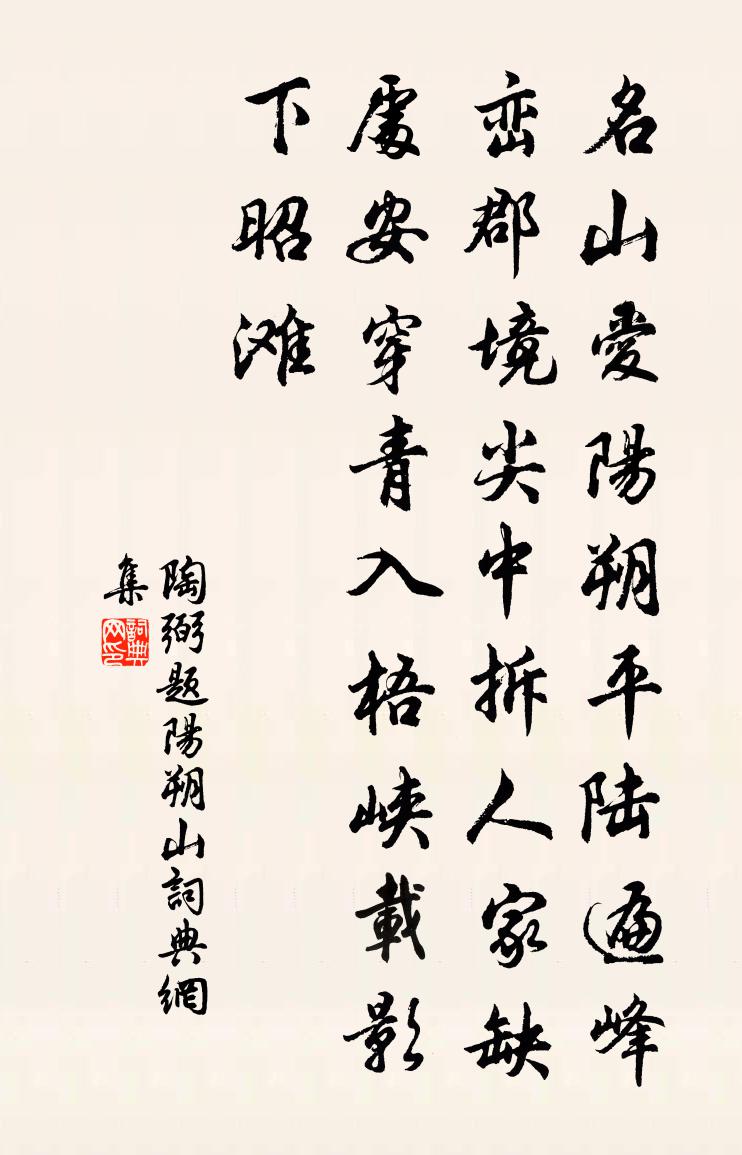 名山愛陽朔平陆遍峰
峦郡境尖中拆人家缺
處安穿青入梧峡載影
下昭滩
陶弼题陽朔山詞典網
集
詞典
网印